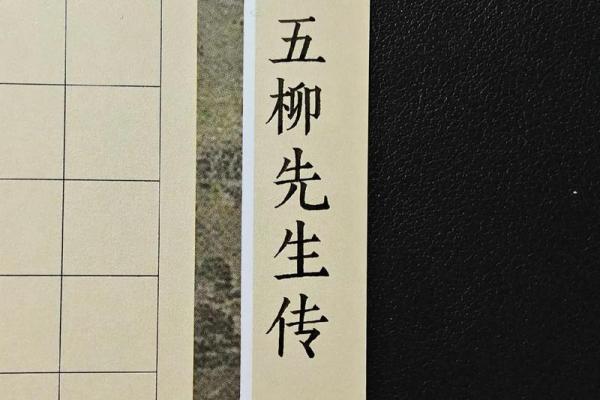 五柳先生传